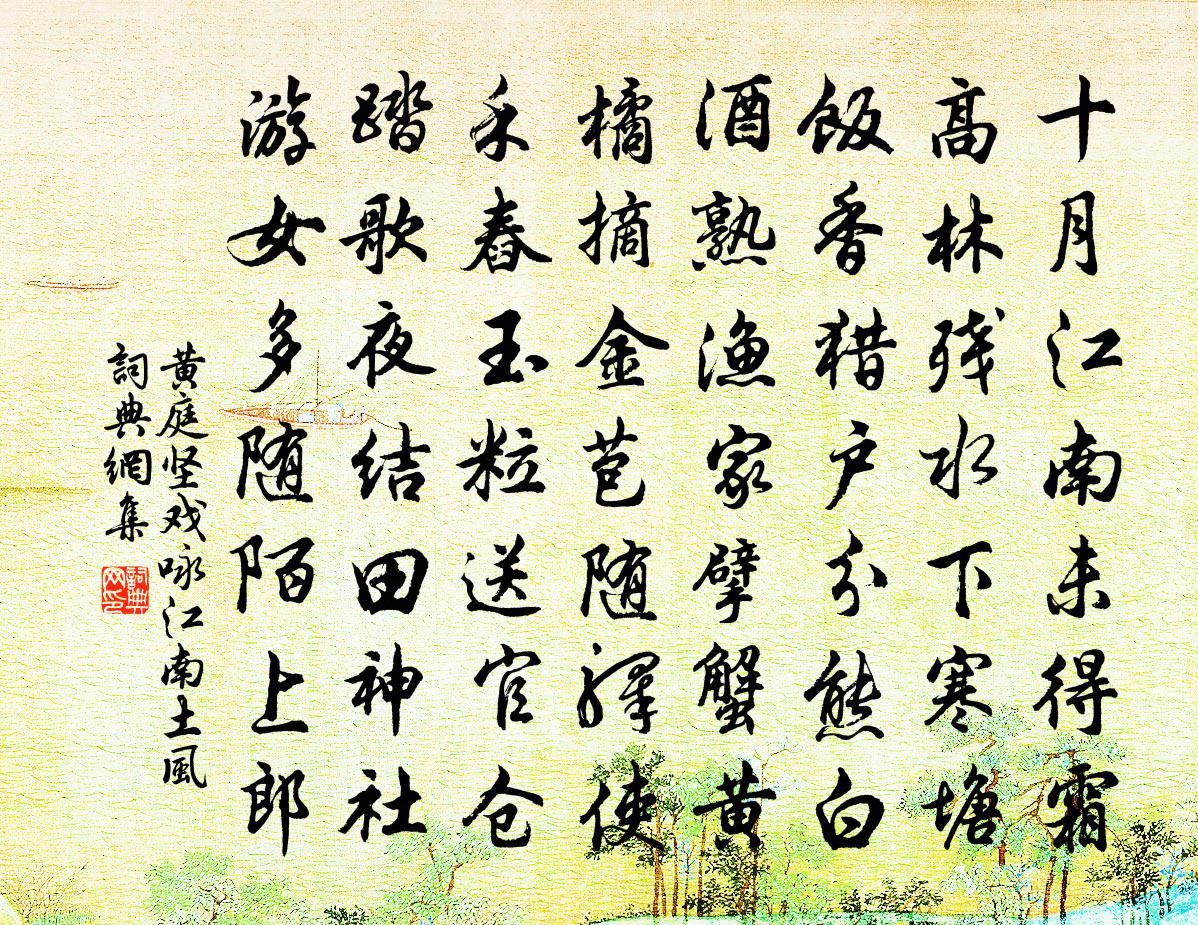 十月江南未得霜
高林残水下寒塘
飯香猎户分熊白
酒熟渔家擘蟹黄
橘摘金苞随驿使
禾舂玉粒送官仓
踏歌夜结田神社
游女多随陌上郎
黄庭坚戏咏江南土風
詞典網集
詞典网印